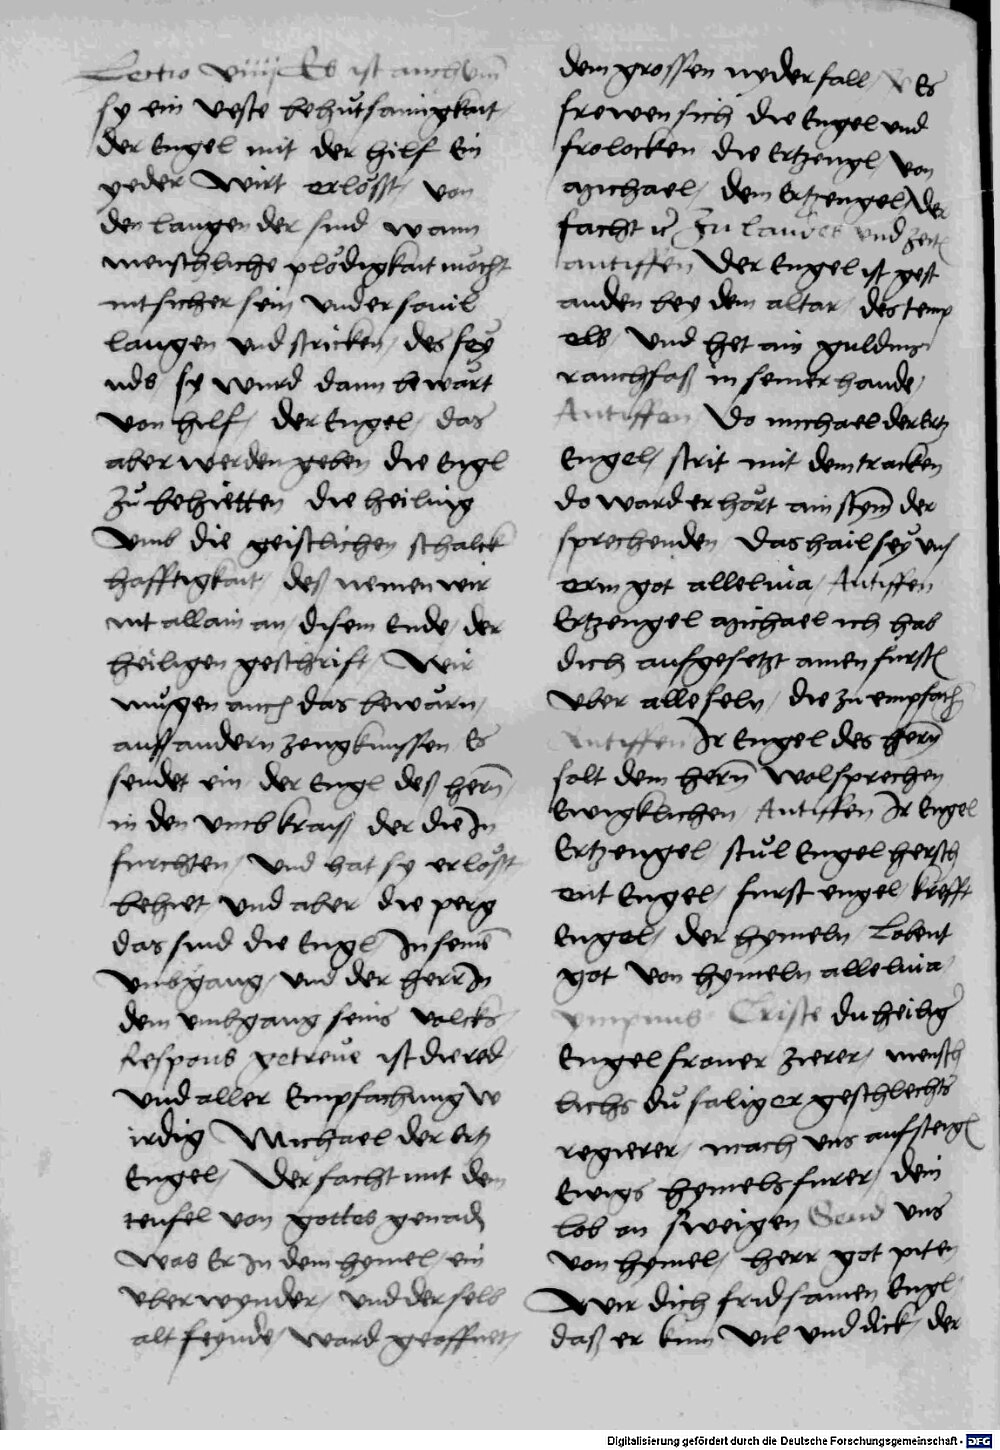 Lectio viiij Es ist auch vm
sy ein veste behůtsamigkait
der Engel mit der hilf Ein
yeder Wirt erlösst, von
den laugen der sind wann
menschliche plödigkait möcht
nit sicher sein vnder souil
laugen vnd stricken, des fey
nds sy wurd dann bewart
von hilf, der Engel, das
aber werden geben die Engl
Zů behietten die heiling
Vmb die geistlichen schalck
hafftigkait, deß nemen wir
nit allain an, disem Ende, der
heiligen geschrift, Wir
mügen auch das bewärn,
auß andern zeugknussen Es
sendet ein der Engl deß hern
in den vmbkraiß der die In
furchten, vnd hat sy erlöst
behiet vnd aber die perg
das sind die Engl In seine
vmbgang, vnd der herr In
dem vmbgang seins volcks
Respons getreue ist die red
vnd aller Empfachung w
irdig Michael der Ertz
Engel, Der facht mit dem
teufel von gottes genad
Was Er In dem hymel, ein
vberwynder, vnd der selb
alt feynde, ward geoffnet,
dem grossen nyderfall, V Es
frewen sich die Engel vnd
frolocken die Ertzengl, von
Michael, dem Ertzengel, der
facht Zu laudes vnd zeit
antiffen Der Engel ist gest
anden bey dem altar, des temp
els, vnd het ain guldins
rauchfaß in seiner hande,
Antiffen Do michael der Ertz
Engel, strit mit dem tracken
do ward erhört ain stym der
sprechenden Das hail sey vns
erm got alleluia, Antiffen
Ertzengel Michael ich hab
dich aufgesetzt ainen furst
vber alle seln, die zu empfach
Antiffen Ir Engel des hern
solt dem hern Wolsprechen
Ewigklichen, Antiffen Ir Engel
Ertzengel, stůl Engel hersch
ent Engel, furst engel, krefft
Engel, der hymeln Lobent
got von hymeln alleluia,
ympnus Criste du heilig
Engel froner zierer, mensch
lichs du saliger geschlechts
regierer, mach vns aufsteigt
Ewigs hymels furer, dein
lob an sweigen Send vns
von hymel, herr got piten
Wir dich fridsamen Engl
daß er kum vil vnd dick, der
Digitalisierung gefördert durch die Deutsche Forschungsgemeinschaft - DFG